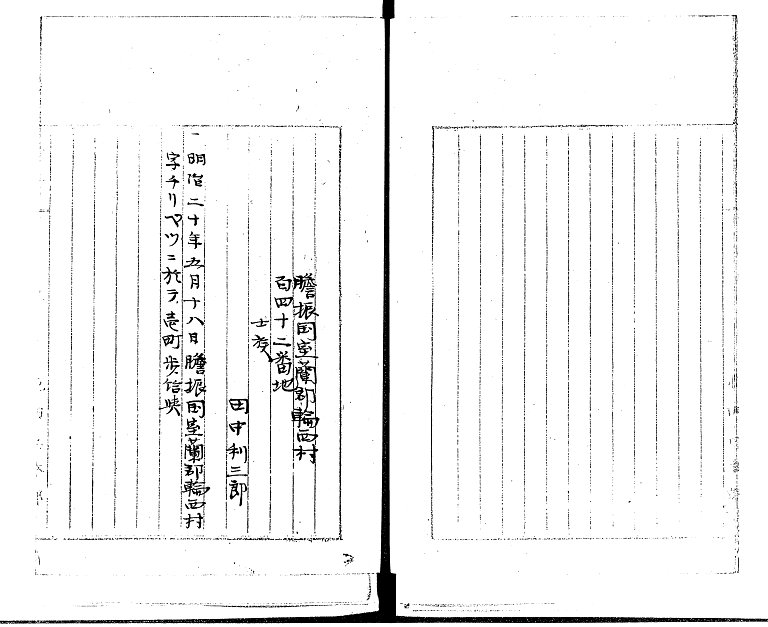 膽振国室蘭郡輪西村
百四十二番地
士族
田中利三郎
一明治二十年五月十八日膽振国室蘭郡輪西村
字チリベツニ於テ壱町歩